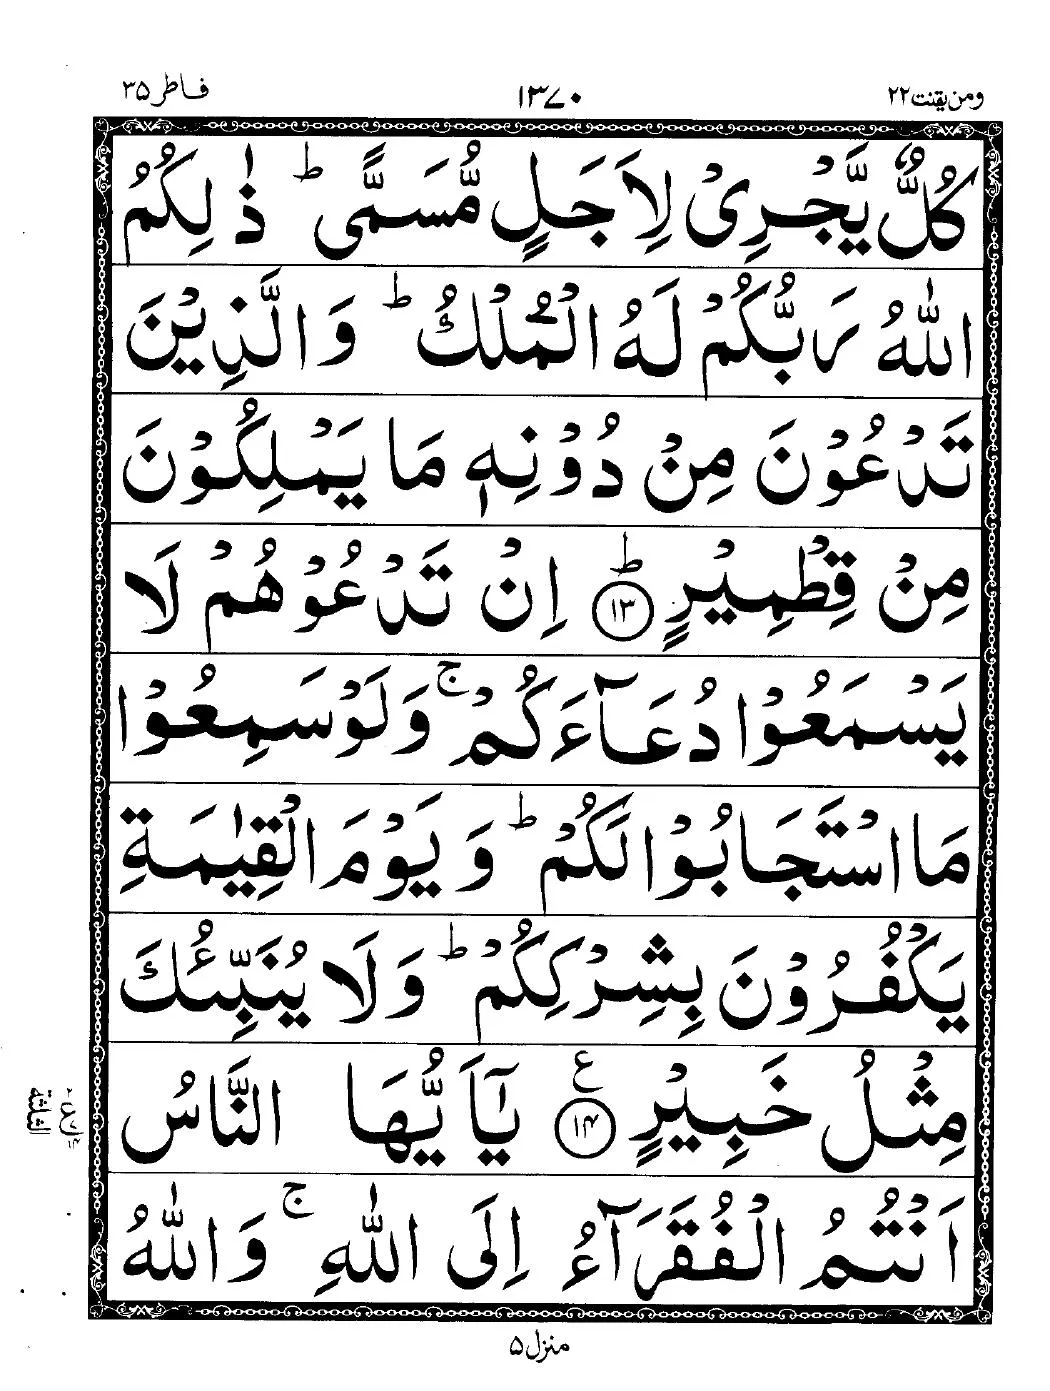 ومن یقنت ۲۲
۱۳۷۰
فاطر ۳۵
كُلٌّ يَّجْرِیْ لِاَجَلٍ مُّسَمًّی ؕ ذٰ لِكُمُ
اللّٰهُ رَبُّكُمْ لَهُ الْمُلْكُ ؕ وَالَّذِيْنَ
تَدْعُوْنَ مِنْ دُوْنِهٖ مَا يَمْلِكُوْنَ
مِنْ قِطْمِيْرٍ ؕ ﴿۱۳﴾ اِنْ تَدْعُوْهُمْ لَا
يَسْمَعُوْا دُعَآءَكُمْ ۚ وَلَوْ سَمِعُوْا
مَا اسْتَجَابُوْا لَكُمْ ؕ وَيَوْمَ الْقِيٰمَةِ
يَكْفُرُوْنَ بِشِرْكِكُمْ ؕ وَلَا يُنَبِّئُكَ
مِثْلُ خَبِيْرٍ ﴿۱۴﴾ ع يٰٓاَيُّهَا النَّاسُ
اَنْتُمُ الْفُقَرَآءُ اِلَی اللّٰهِ ۚ وَاللّٰهُ
الثلثة
منزل ۵